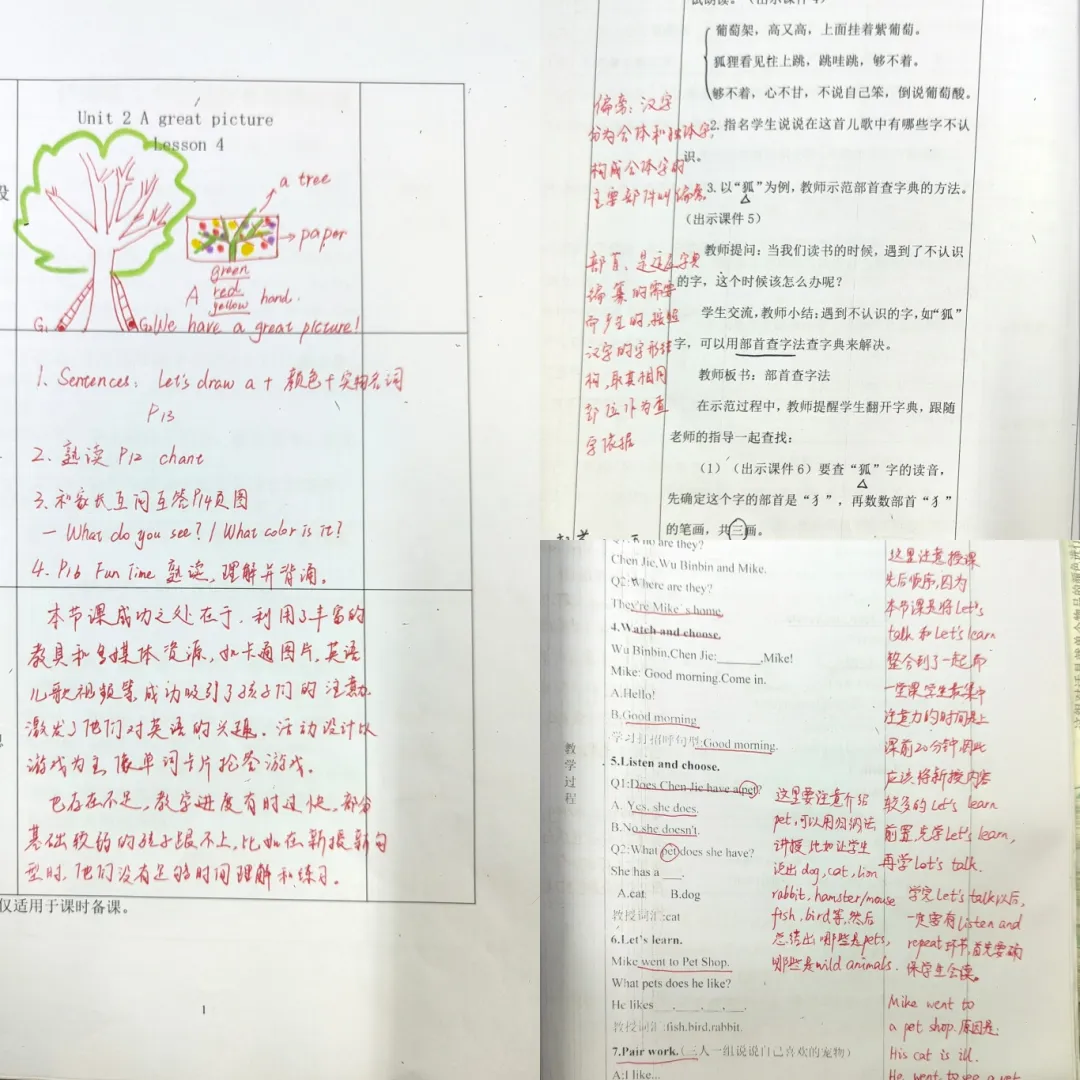 Unit 2 A great picture
Lesson 4
a tree
paper
green
red
A yellow hand.
G1
G2
We have a great picture!
1. Sentences: Let's draw a + 颜色 + 实物名词
P13
2. 熟读 P12 chant
3. 和家长互问互答P14页图
— What do you see? / What color is it?
4. P16 Fun Time 熟读,理解并背诵。
本节课成功之处在于,利用了丰富的
教具和多媒体资源,如卡通图片,英语
儿歌视频等,成功吸引了孩子们的注意力,
激发了他们对英语的兴趣。活动设计以
游戏为主,像单词卡片抢答游戏。
也存在不足,教学进度有时过快,部分
基础较弱的孩子跟不上,比如在新授新句
型时,他们没有足够时间理解和练习。
仅适用于课时备课。
1
试朗读。(出示课件4)
葡萄架,高又高,上面挂着紫葡萄。
狐狸看见往上跳,跳哇跳,够不着。
够不着,心不甘,不说自己笨,倒说葡萄酸。
2.指名学生说说在这首儿歌中有哪些字不认
识。
3.以“狐”为例,教师示范部首查字典的方法。
(出示课件5)
教师提问:当我们读书的时候,遇到了不认识
的字,这个时候该怎么办呢?
学生交流,教师小结:遇到不认识的字,如“狐”
字,可以用部首查字法查字典来解决。
教师板书:部首查字法
在示范过程中,教师提醒学生翻开字典,跟随
老师的指导一起查找:
(1)(出示课件6)要查“狐”字的读音,
先确定这个字的部首是“犭”,再数数部首“犭”
的笔画,共三画。
偏旁:汉字
分为合体和独体字,
构成合体字的
主要部件叫偏旁。
部首,是这字典
编纂的需要
而产生的,按照
汉字的字形结
构,取其相同
部位作为查
字依据
are they?
Chen Jie,Wu Binbin and Mike.
Q2:Where are they?
They're Mike's home.
4.Watch and choose.
Wu Binbin,Chen Jie:_______,Mike!
Mike: Good morning.Come in.
A.Hello!
B.Good morning
学习打招呼句型:Good morning.
5.Listen and choose.
Q1:Does Chen Jie have a pet?
A. Yes, she does.
B.No,she doesn't.
Q2:What pet does she have?
She has a ___.
A.cat. B.dog
教授词汇:cat
6.Let's learn.
Mike went to Pet Shop.
What pets does he like?
He likes ___,___,___,___.
教授词汇:fish,bird,rabbit.
7.Pair work.(三人一组说说自己喜欢的宠物)
A:I like...
教学过程
这里要注意介绍
pet,可以用归纳法
讲授,比如让学生
说出dog, cat, lion
rabbit, hamster/mouse
fish, bird等,然后
总结出哪些是pets,
哪些是wild animals.
这里注意授课
先后顺序,因为
本节课是将Let's
talk 和 Let's learn
整合到了一起而
一堂课学生最集中
注意力的时间是上
课前20分钟,因此
应该将新授内容
较多的Let's learn
前置,先学Let's learn,
再学Let's talk.
学完Let's talk以后,
一定要有Listen and
repeat环节,首先要确
保学生会读。
Mike went to
a pet shop.原因是:
His cat is ill.
He went to see a vet